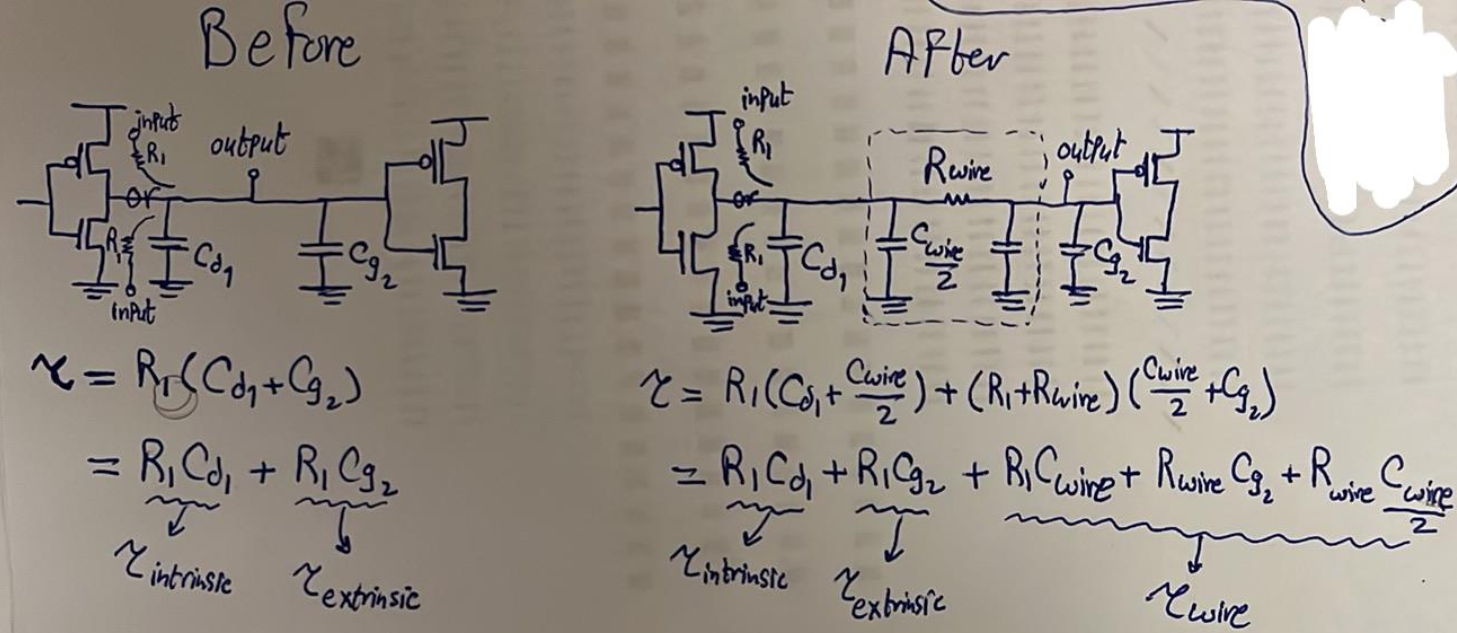 Before
input
R₁
output
or
R₁
Cd₁
Cg₂
input
τ = R₁(Cd₁+Cg₂)
= R₁Cd₁ + R₁Cg₂
τintrinsic τextrinsic
AFter
input
R₁
Rwire
output
or
R₁
Cd₁
Cwire/2
Cg₂
input
τ = R₁(Cd₁+Cwire/2)+(R₁+Rwire)(Cwire/2+Cg₂)
= R₁Cd₁ + R₁Cg₂ + R₁Cwire + RwireCg₂ + Rwire Cwire/2
τintrinsic τextrinsic τwire